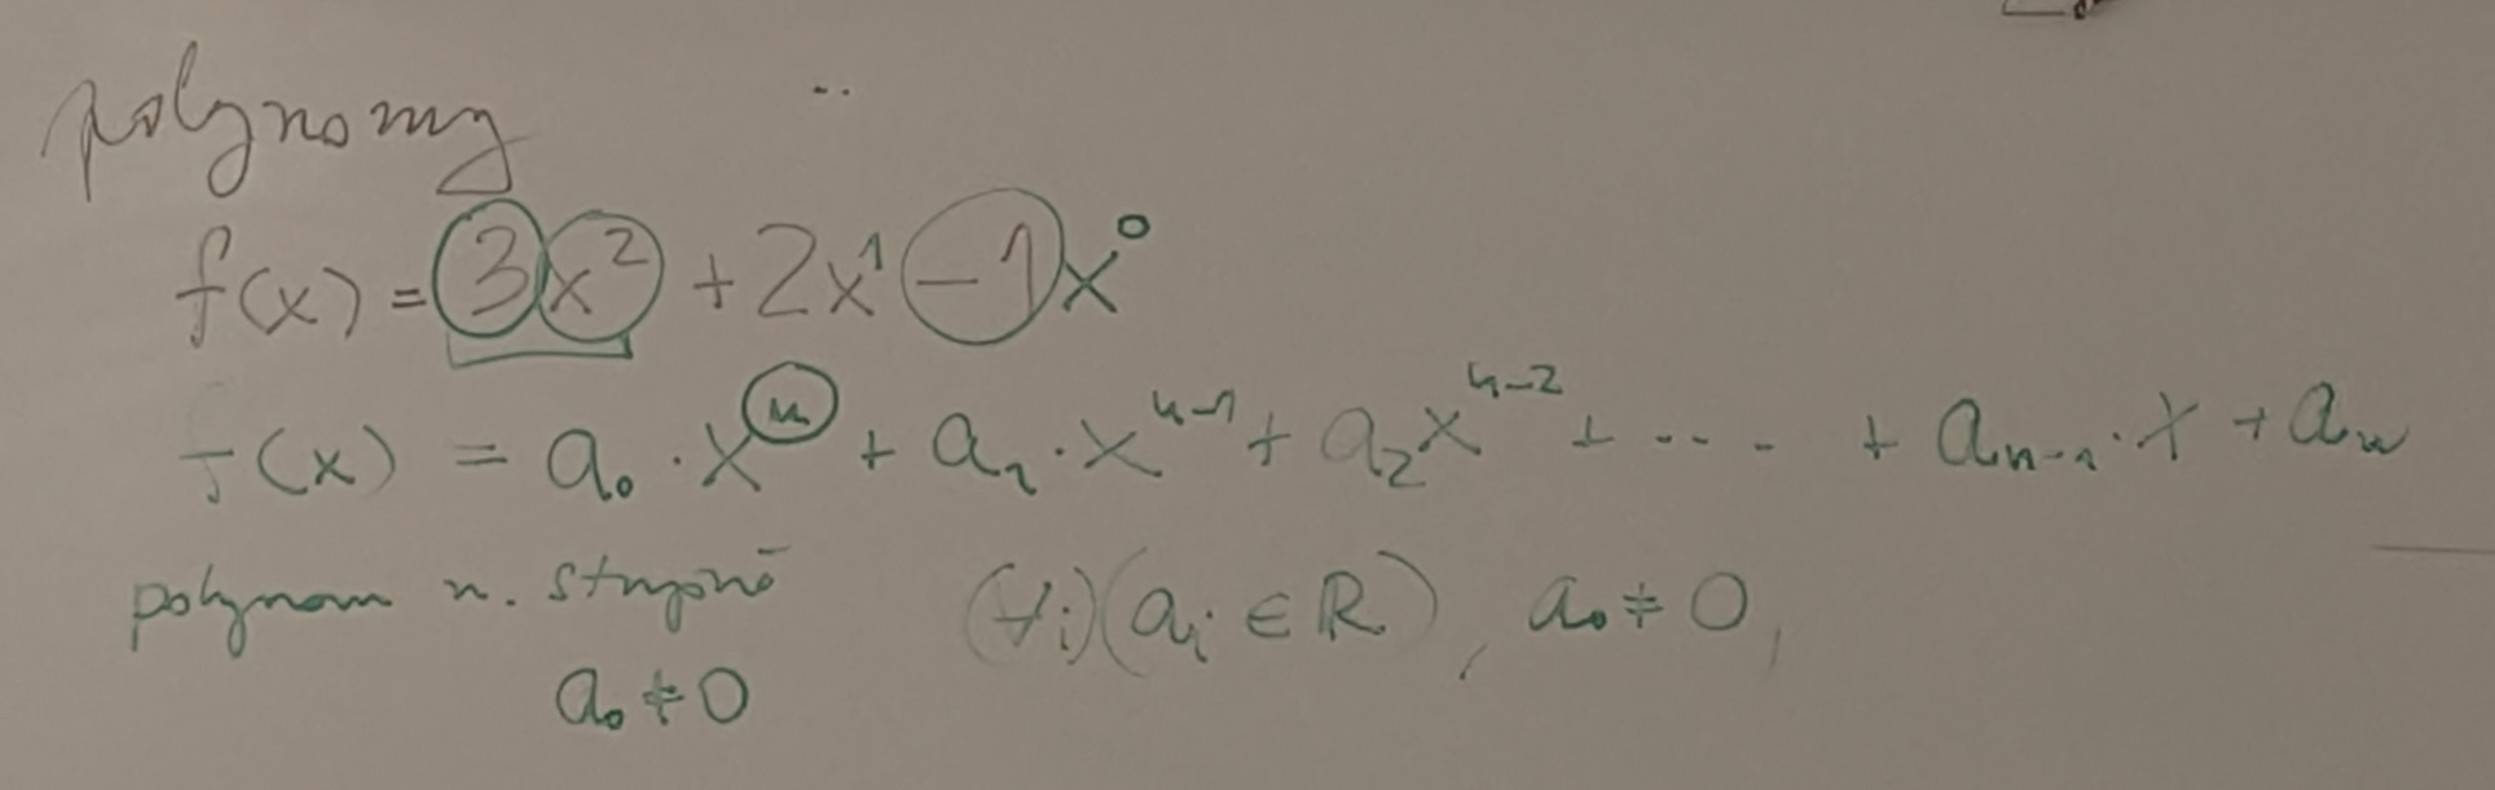 polynomy
f(x) = 3x² + 2x¹ − 1x⁰
f(x) = a₀ · xⁿ + a₁ · xⁿ⁻¹ + a₂xⁿ⁻² + .... + aₙ₋₁ · x + aₙ
polynom n. stupně (∀i)(aᵢ ∈ R), a₀ ≠ 0,
a₀ ≠ 0